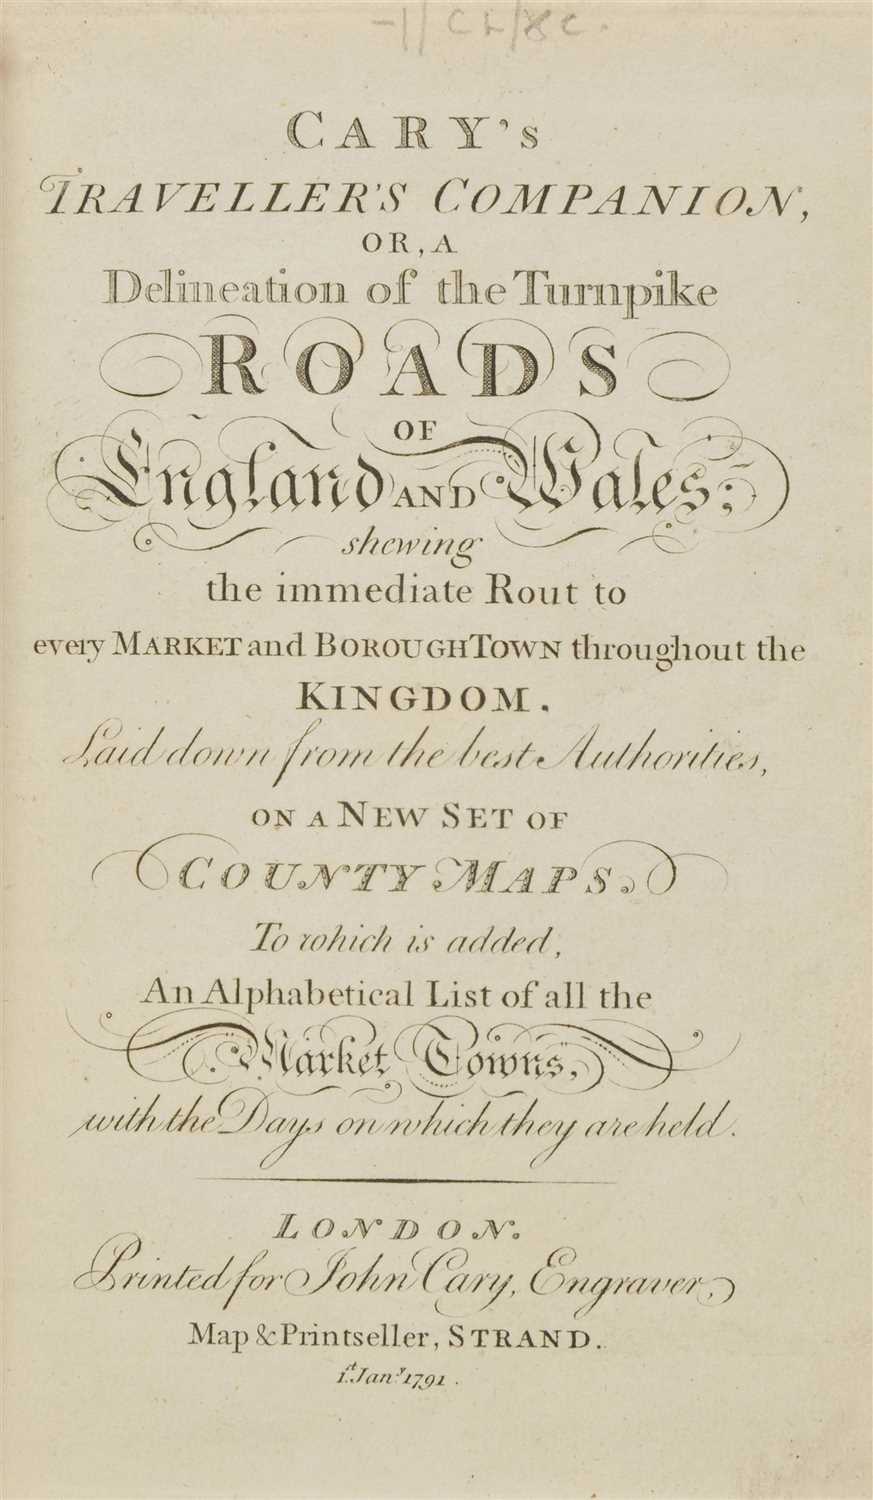 CARY'S
TRAVELLER'S COMPANION,
OR, A
Delineation of the Turnpike
ROADS
OF
England AND Wales;
shewing
the immediate Rout to
every MARKET and BOROUGH TOWN throughout the
KINGDOM.
Laid down from the best Authorities,
ON A NEW SET OF
COUNTY MAPS.
To which is added,
An Alphabetical List of all the
Market Towns,
with the Days on which they are held.
LONDON.
Printed for John Cary, Engraver,
Map & Printseller, STRAND.
1st. Jany. 1791.